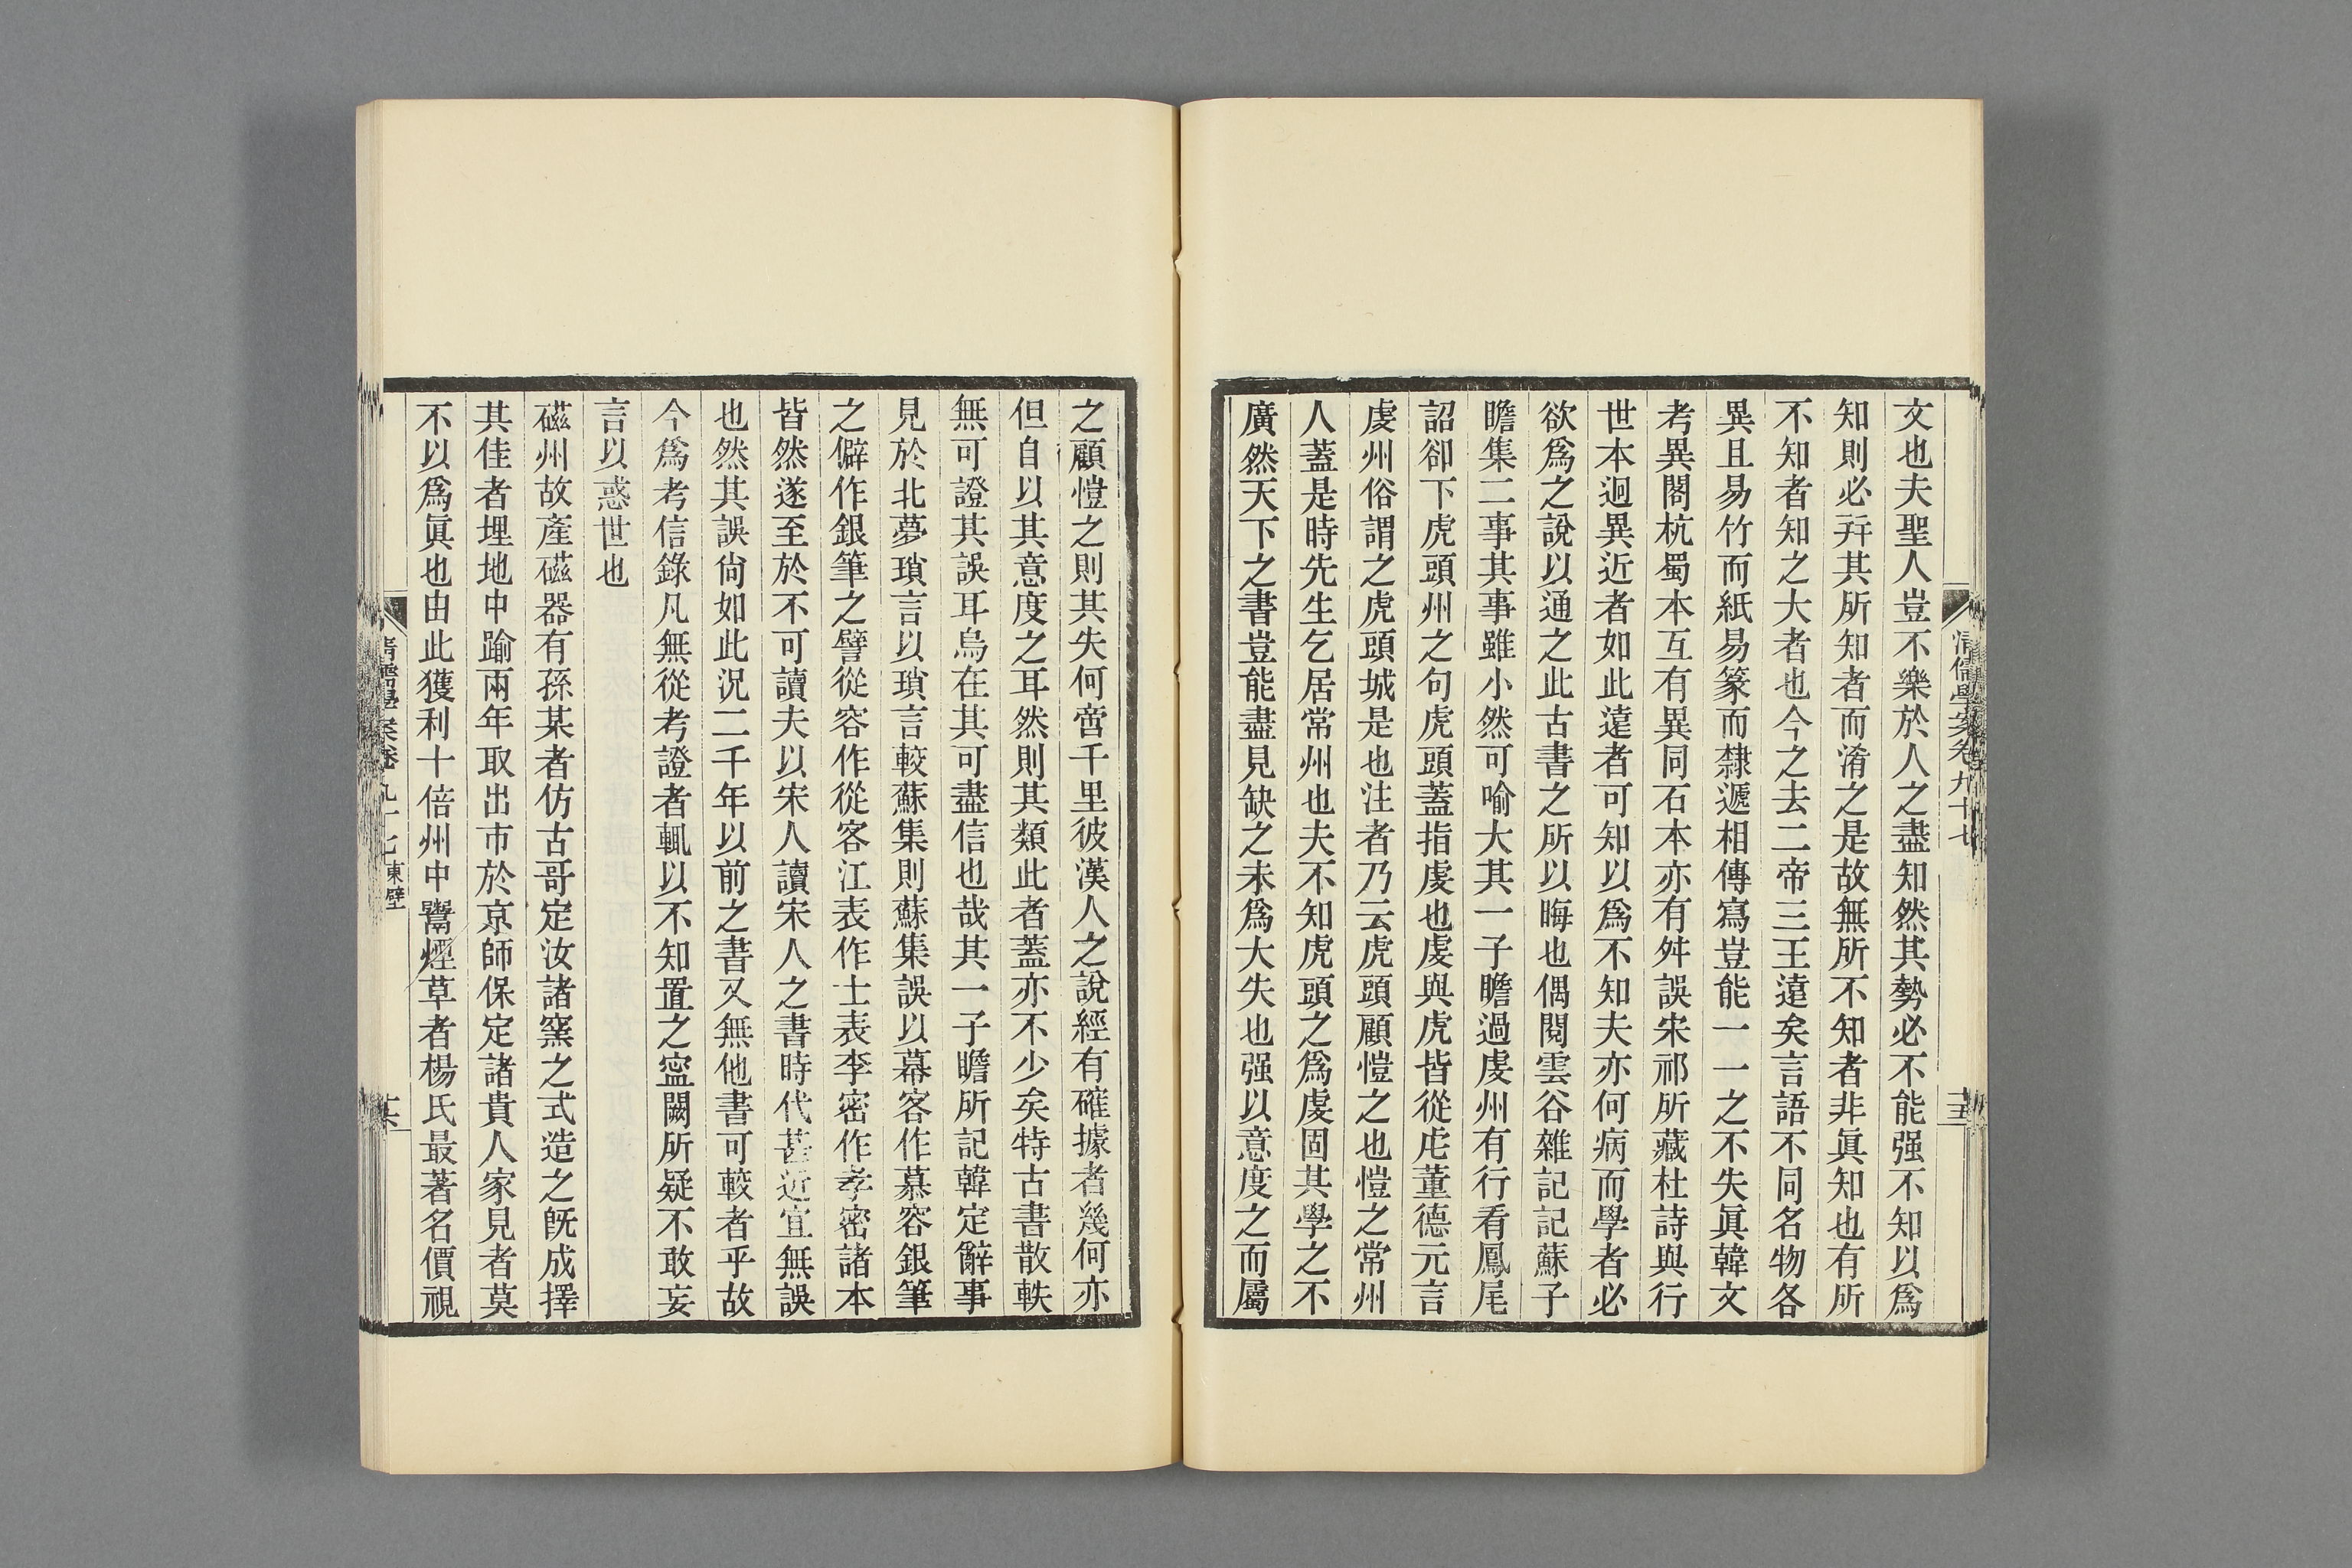 清儒學案卷九十七
文也夫聖人豈不樂於人之盡知然其勢必不能强不知以爲
知則必并其所知者而淆之是故無所不知者非眞知也有所
不知者知之大者也今之去二帝三王遠矣言語不同名物各
異且易竹而紙易篆而隸遞相傳寫豈能一一之不失眞韓文
考異閣杭蜀本互有異同石本亦有舛誤宋祁所藏杜詩與行
世本迥異近者如此遠者可知以爲不知夫亦何病而學者必
欲爲之說以通之此古書之所以晦也偶閱雲谷雜記記蘇子
瞻集二事其事雖小然可喻大其一子瞻過虔州有行看鳳尾
詔卻下虎頭州之句虎頭蓋指虔也虔與虎皆從虍董德元言
虔州俗謂之虎頭城是也注者乃云虎頭顧愷之也愷之常州
人蓋是時先生乞居常州也夫不知虎頭之爲虔固其學之不
廣然天下之書豈能盡見缺之未爲大失也强以意度之而屬
之顧愷之則其失何啻千里彼漢人之說經有確據者幾何亦
但自以其意度之耳然則其類此者蓋亦不少矣特古書散軼
無可證其誤耳烏在其可盡信也哉其一子瞻所記韓定辭事
見於北夢瑣言以瑣言較蘇集則蘇集誤以幕客作慕容銀筆
之僻作銀筆之譬從容作從客江表作士表李密作孝密諸本
皆然遂至於不可讀夫以宋人讀宋人之書時代甚近宜無誤
也然其誤尙如此況二千年以前之書又無他書可較者乎故
今爲考信錄凡無從考證者輒以不知置之寍闕所疑不敢妄
言以惑世也
磁州故產磁器有孫某者仿古哥定汝諸窯之式造之旣成擇
其佳者埋地中踰兩年取出市於京師保定諸貴人家見者莫
不以爲眞也由此獲利十倍州中鬻煙草者楊氏最著名價視
清儒學案卷九十七 東壁